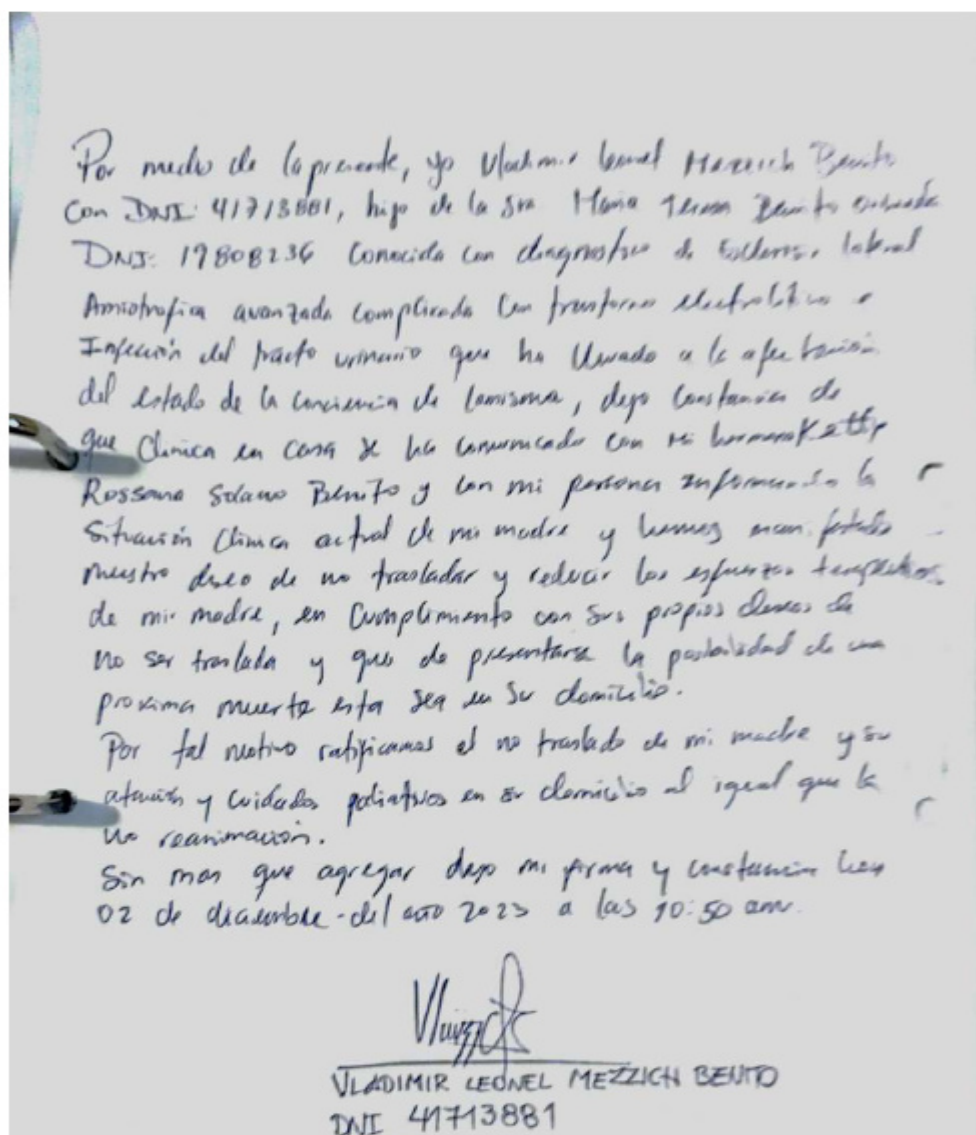 Por medio de la presente, yo Vladimir Leonel Mezzich Benito
Con DNI: 41713881, hijo de la Sra. Maria Teresa Benito
DNI: 19808236 Conocida con diagnostico de Esclerosis lateral
Amiotrofica avanzada complicada con trastorno electrolitico e
Infección del tracto urinario que ha llevado a la afectación
del estado de la conciencia de la misma, dejo constancia de
que Clinica en casa se ha comunicado con mi hermana Kettip
Rossana Solano Benito y con mi persona informando la
situación clinica actual de mi madre y hemos manifestado
nuestro deseo de no trasladar y reducir los esfuerzos terapeuticos
de mi madre, en cumplimiento con sus propios deseos de
no ser traslada y que de presentarse la posibilidad de una
proxima muerte esta sea en su domicilio.
Por tal motivo ratificamos el no traslado de mi madre y su
atención y cuidados paliativos en su domicilio al igual que la
no reanimación.
Sin mas que agregar dejo mi firma y constancia hoy
02 de diciembre del año 2023 a las 10:50 am.
VLADIMIR LEONEL MEZZICH BENITO
DNI 41713881